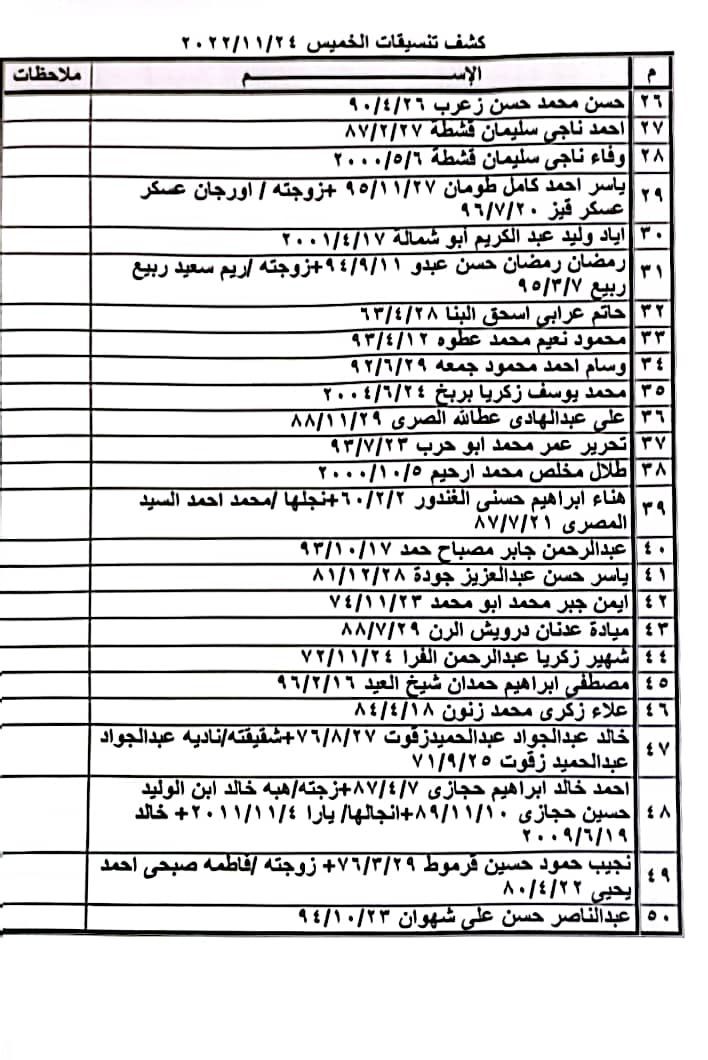 كشف تنسيقات الخميس ٢٠٢٢/١١/٢٤
م الإســــــــــم ملاحظات
٢٦ حسن محمد حسن زعرب ٩٠/٤/٢٦
٢٧ احمد ناجى سليمان قشطة ٨٧/٢/٢٧
٢٨ وفاء ناجى سليمان قشطة ٢٠٠٠/٥/٦
٢٩ ياسر احمد كامل طومان ٩٥/١١/٢٧ +زوجته / اورجان عسكر
عسكر قيز ٩٦/٧/٢٠
٣٠ اياد وليد عبد الكريم أبو شمالة ٢٠٠١/٤/١٧
٣١ رمضان رمضان حسن عبدو ٩٤/٩/١١+زوجته /ريم سعيد ربيع
ربيع ٩٥/٣/٧
٣٢ حاتم عرابى اسحق البنا ٦٣/٤/٢٨
٣٣ محمود نعيم محمد عطوه ٩٣/٤/١٢
٣٤ وسام احمد محمود جمعه ٩٢/٦/٢٩
٣٥ محمد يوسف زكريا بربخ ٢٠٠٤/٦/٢٤
٣٦ على عبدالهادى عطالله الصرى ٨٨/١١/٢٩
٣٧ تحرير عمر محمد ابو حرب ٩٣/٧/٢٣
٣٨ طلال مخلص محمد ارحيم ٢٠٠٠/١٠/٥
٣٩ هناء ابراهيم حسنى الغندور ٦٠/٢/٢+نجلها /محمد احمد السيد
المصرى ٨٧/٧/٢١
٤٠ عبدالرحمن جابر مصباح حمد ٩٣/١٠/١٧
٤١ ياسر حسن عبدالعزيز جودة ٨١/١٢/٢٨
٤٢ ايمن جبر محمد ابو محمد ٧٤/١١/٢٣
٤٣ ميادة عدنان درويش الرن ٨٨/٧/٢٩
٤٤ شهير زكريا عبدالرحمن الفرا ٧٢/١١/٢٤
٤٥ مصطفى ابراهيم حمدان شيخ العيد ٩٦/٢/١٦
٤٦ علاء زكرى محمد زنون ٨٤/٤/١٨
٤٧ خالد عبدالجواد عبدالحميدزقوت ٧٦/٨/٢٧+شقيقته/ناديه عبدالجواد
عبدالحميد زقوت ٧١/٩/٢٥
٤٨ احمد خالد ابراهيم حجازى ٨٧/٤/٧+زجته/هبه خالد ابن الوليد
حسين حجازى ٨٩/١١/١٠+انجالها/ يارا ٢٠١١/١١/٤+ خالد
٢٠٠٩/٦/١٩
٤٩ نجيب حمود حسين قرموط ٧٦/٣/٢٩+ زوجته /فاطمه صبحى احمد
يحيى ٨٠/٤/٢٢
٥٠ عبدالناصر حسن على شهوان ٩٤/١٠/٢٣